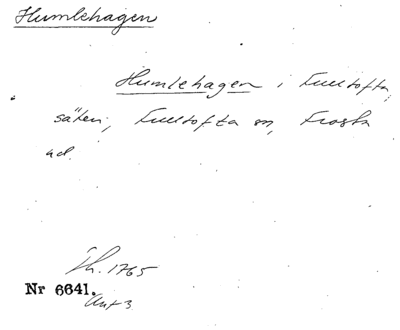 Humlehagen
Humlehagen i Fulltofta
säteri, Fulltofta sn, Frosta
hd.
Th. 1765
Nr 6641.
Akt 3